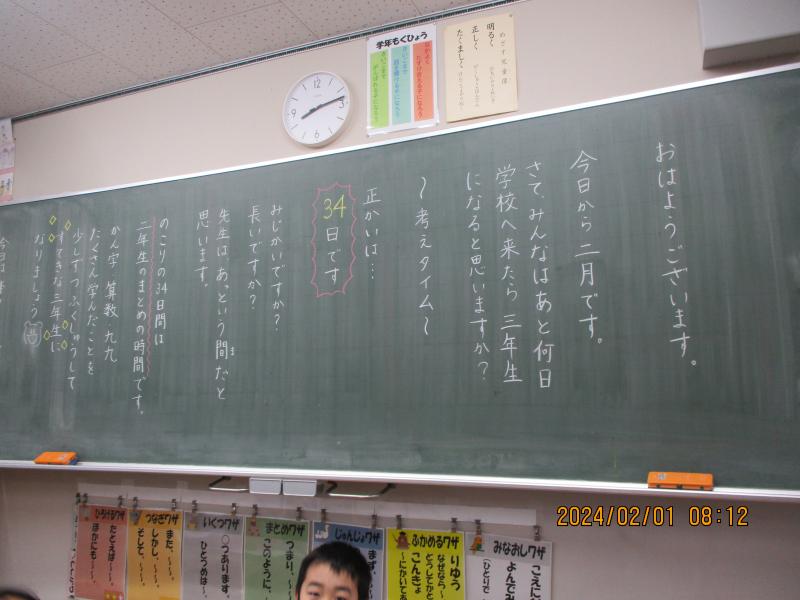 おはようございます。
今日から二月です。
さて、みんなはあと何日
学校へ来たら三年生
になると思いますか?
~考えタイム~
正かいは…
34
日です
みじかいですか?
長いですか?
先生は、あっという間だと
ま
思います。
のこりの34日間は
二年生のまとめの時間です。
かん字、算数、九九
たくさん学んだことを
少しずつふくしゅうして
すてきな三年生に
なりましょう
学年もくひょう
めざす児童像
明るく
正しく
たくましく
12
3
6
9
ひろげるワザ
たとえば~、
ほかにも~、
つなぎワザ
また、~、
しかし、~、
そして、~、
いくつワザ
○つあります。
ひとつめは~、
まとめワザ
つまり、~、
このように、
じゅんじょワザ
まず、
ふかめるワザ
りゆう
なぜなら~
どうしてかと
こんきょ
~にかいてあ
みなおしワザ
こえに
よんでみ
ひとりで
2024/02/01 08:12